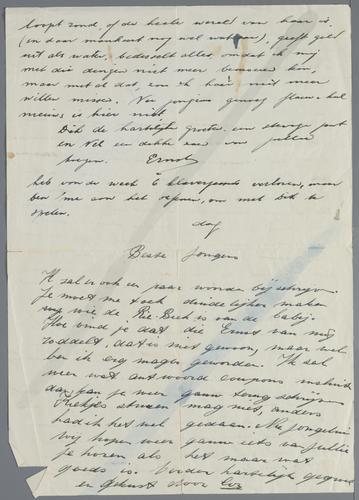 loopt rond, of de heele wereld van haar is,
(en daar mankeert nog wel wat aan), geeft geld
uit als water, bedisselt alles, omdat ik mij
met die dingen niet meer bemoeien kan,
maar met dat al, zou ik haar niet meer
willen missen. Nu jongens genoeg, flauwe kul
nieuws is hier niet.
Dik de hartelijke groeten, een stevige poot
en Nel een dikke zoen van jullie
Ernst
heb van de week klaverjassende verloren, maar
ben me aan het oefenen, om met Dik te
spelen.
dag
Beste Jongens
Ik zal er ook een paar woorden bij schrijven.
Je moet me toch duidelijker maken
wie de is van de baby.
Hoe vind je dat die Ernst van mij
roddelt, dat is niet gewoon, maar wel
ben ik erg mager geworden. Ik zal
weer wat antwoord coupons
dan kan je weer gauw terug schrijven
mag niet, anders
had ik het wel gedaan. Nu jongelui
wij hopen weer gauw iets van jullie
te hooren als het maar wat
goeds is. Verder hartelijk gegroet
en gekust door